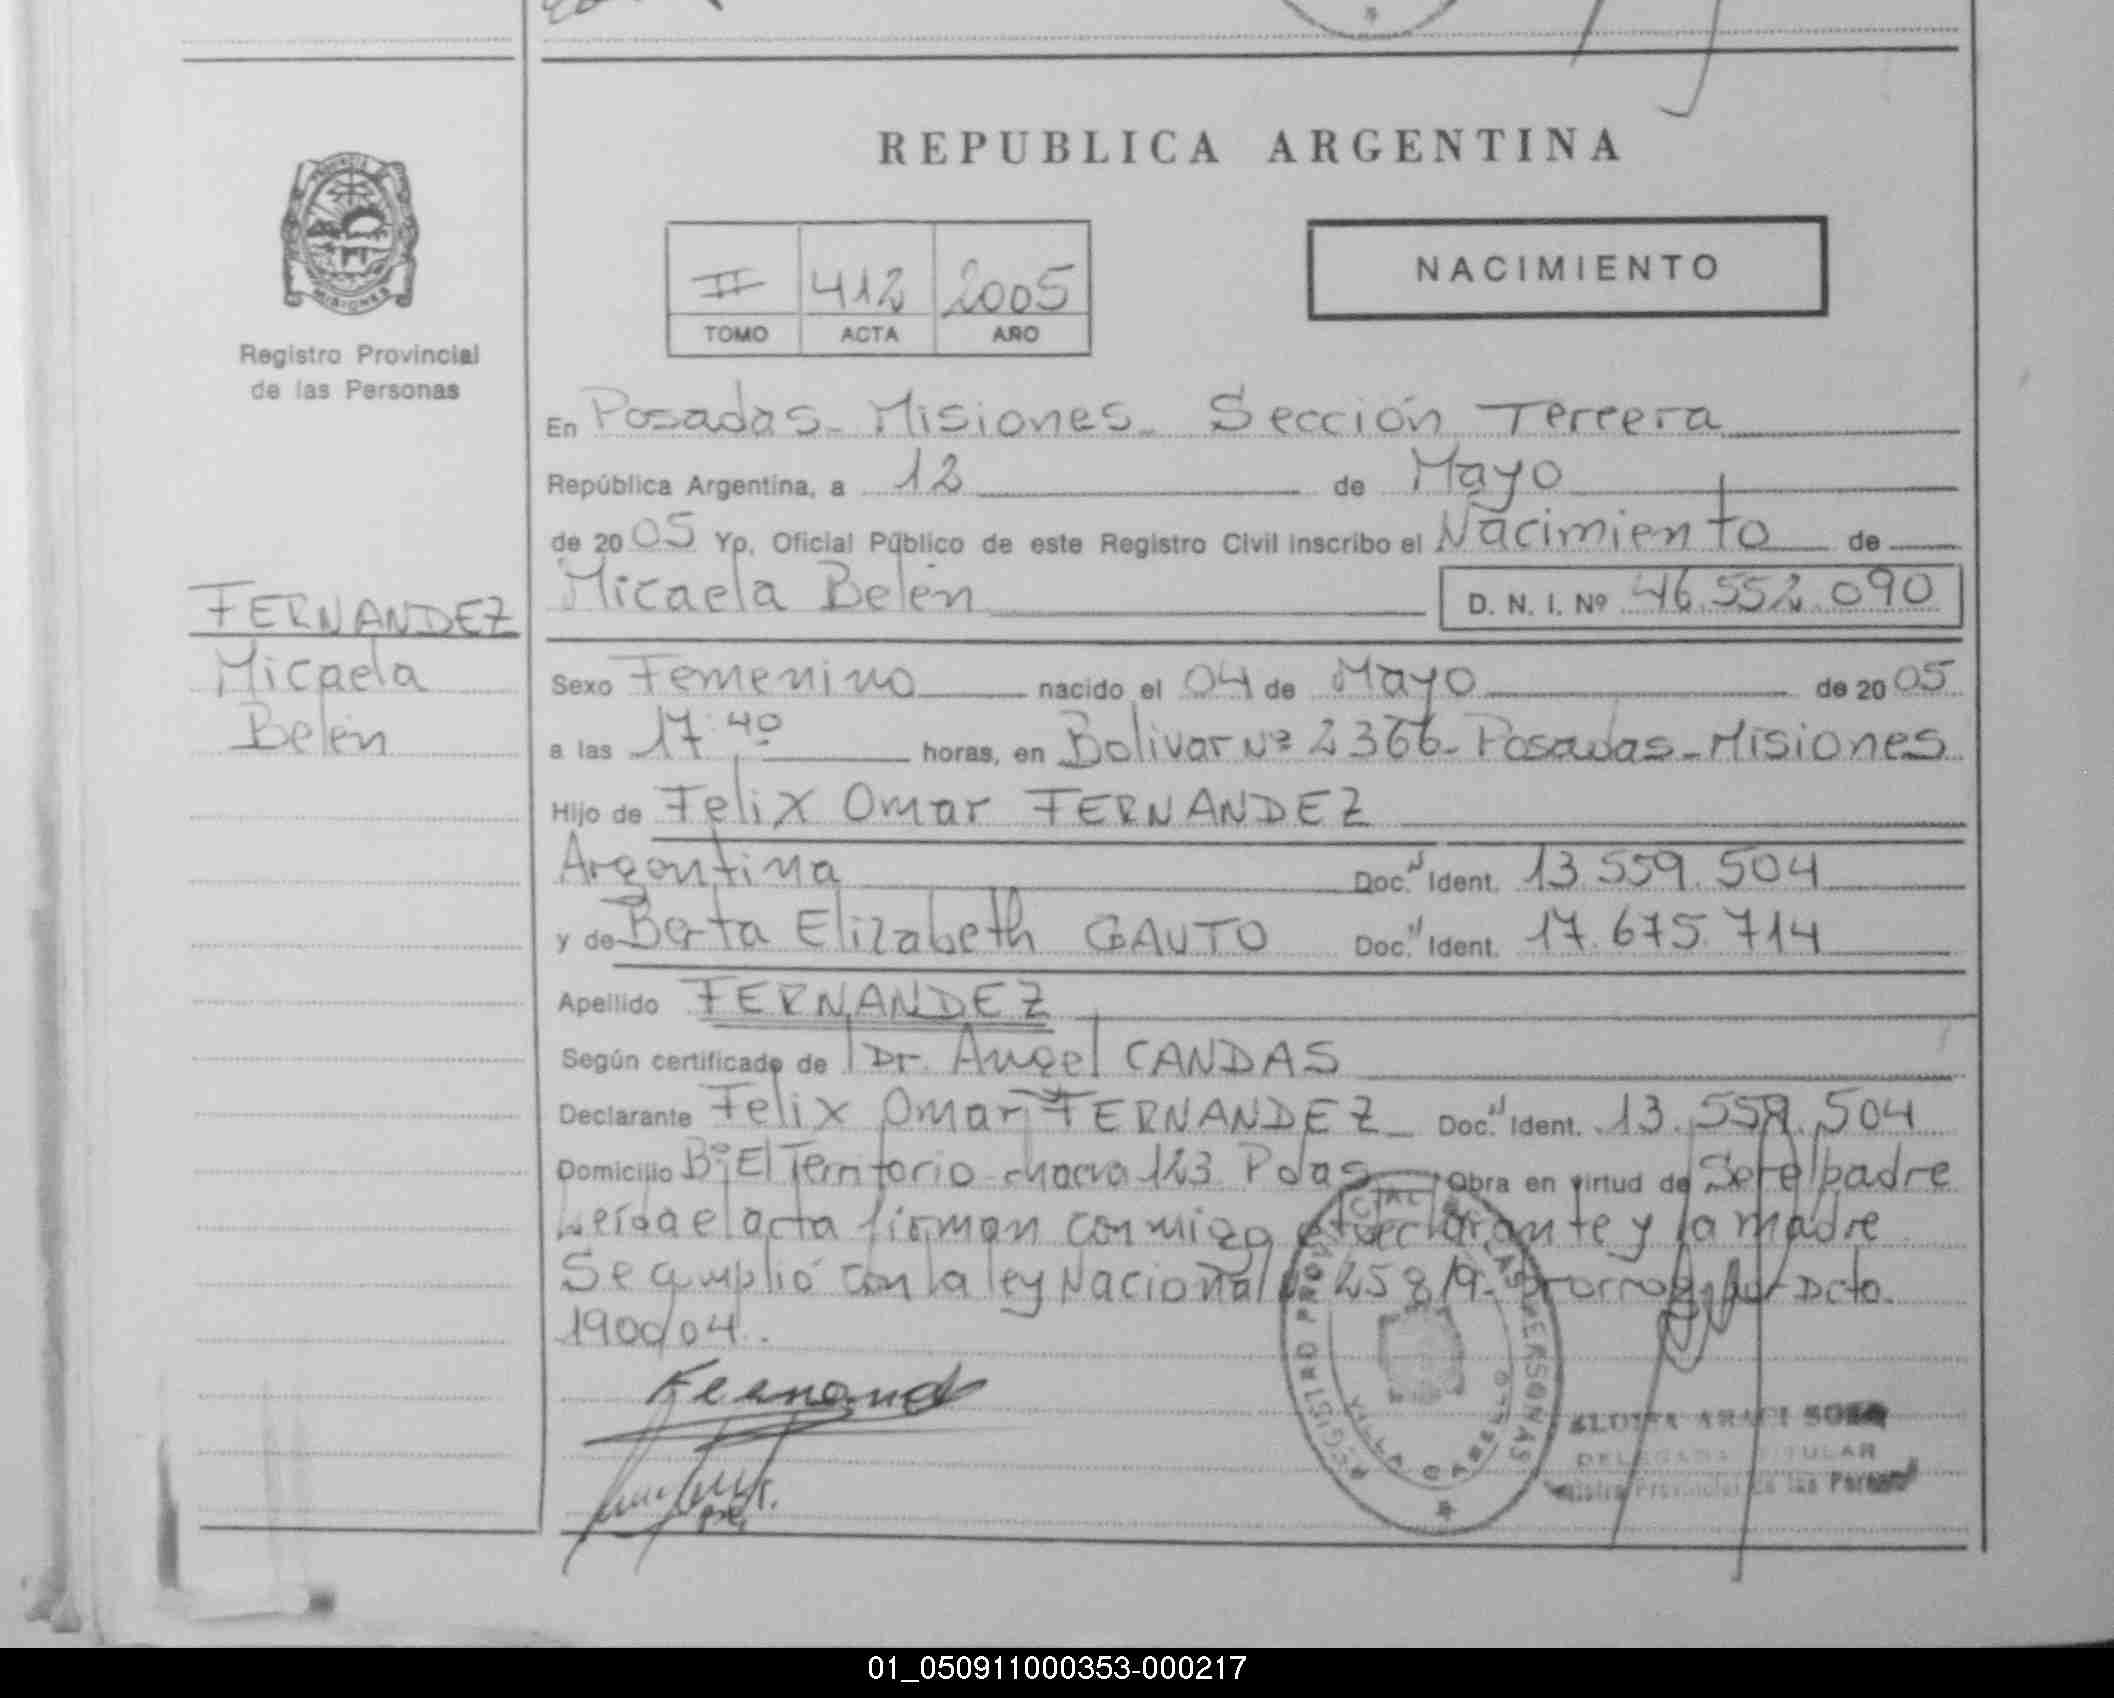 REPUBLICA ARGENTINA
PROVINCIA
MISIONES
Registro Provincial
de las Personas
II 412 2005
TOMO ACTA AÑO
NACIMIENTO
En Posadas - Misiones - Sección Tercera
República Argentina, a 12 de Mayo
de 2005 Yo, Oficial Público de este Registro Civil inscribo el Nacimiento de
Micaela Belén D. N. I. Nº 46.552.090
FERNANDEZ
Micaela
Belén
Sexo Femenino nacido el 04 de Mayo de 2005
a las 17:40 horas, en Bolivar Nº 2366 - Posadas - Misiones
Hijo de Felix Omar FERNANDEZ
Argentina Doc. Ident. 13.559.504
y de Berta Elizabeth GAUTO Doc. Ident. 17.675.714
Apellido FERNANDEZ
Según certificado de Dr. Angel CANDAS
Declarante Felix Omar FERNANDEZ Doc. Ident. 13.559.504
Domicilio Bº El Territorio chacra 123 Pdas Obra en virtud de Ser el padre
Leída el acta firman conmigo el declarante y la madre
Se cumplió con la ley Nacional 25819 - prorrog. por Dcto.
1900/04.
Fernand
VILLA OTBELLO
ARACI SOSA
DELEGADA TITULAR
Registro Provincial de las Personas
01_050911000353-000217